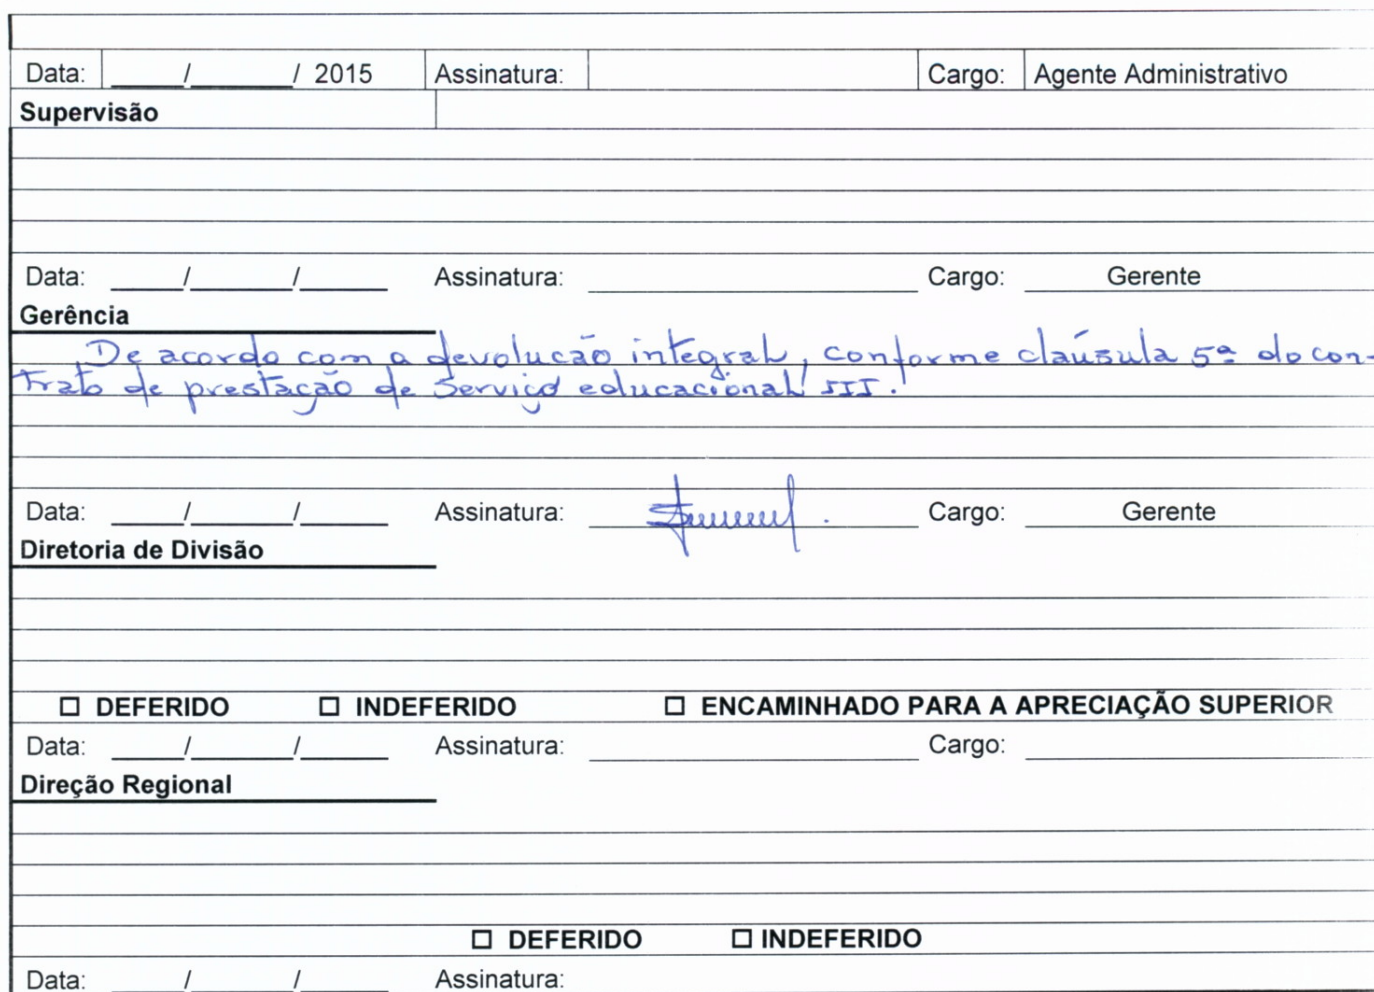 Data: ____/______/ 2015 Assinatura: Cargo: Agente Administrativo
Supervisão
Data: ____/______/______ Assinatura: ____________ Cargo: Gerente
Gerência
De acordo com a devolução integral, conforme claúsula 5ª do con-
trato de prestação de Serviço educacional III.
Data: ____/______/______ Assinatura: ____________ Cargo: Gerente
Diretoria de Divisão
☐ DEFERIDO ☐ INDEFERIDO ☐ ENCAMINHADO PARA A APRECIAÇÃO SUPERIOR
Data: ____/______/______ Assinatura: ____________ Cargo: ____________
Direção Regional
☐ DEFERIDO ☐ INDEFERIDO
Data: ____/______/______ Assinatura: